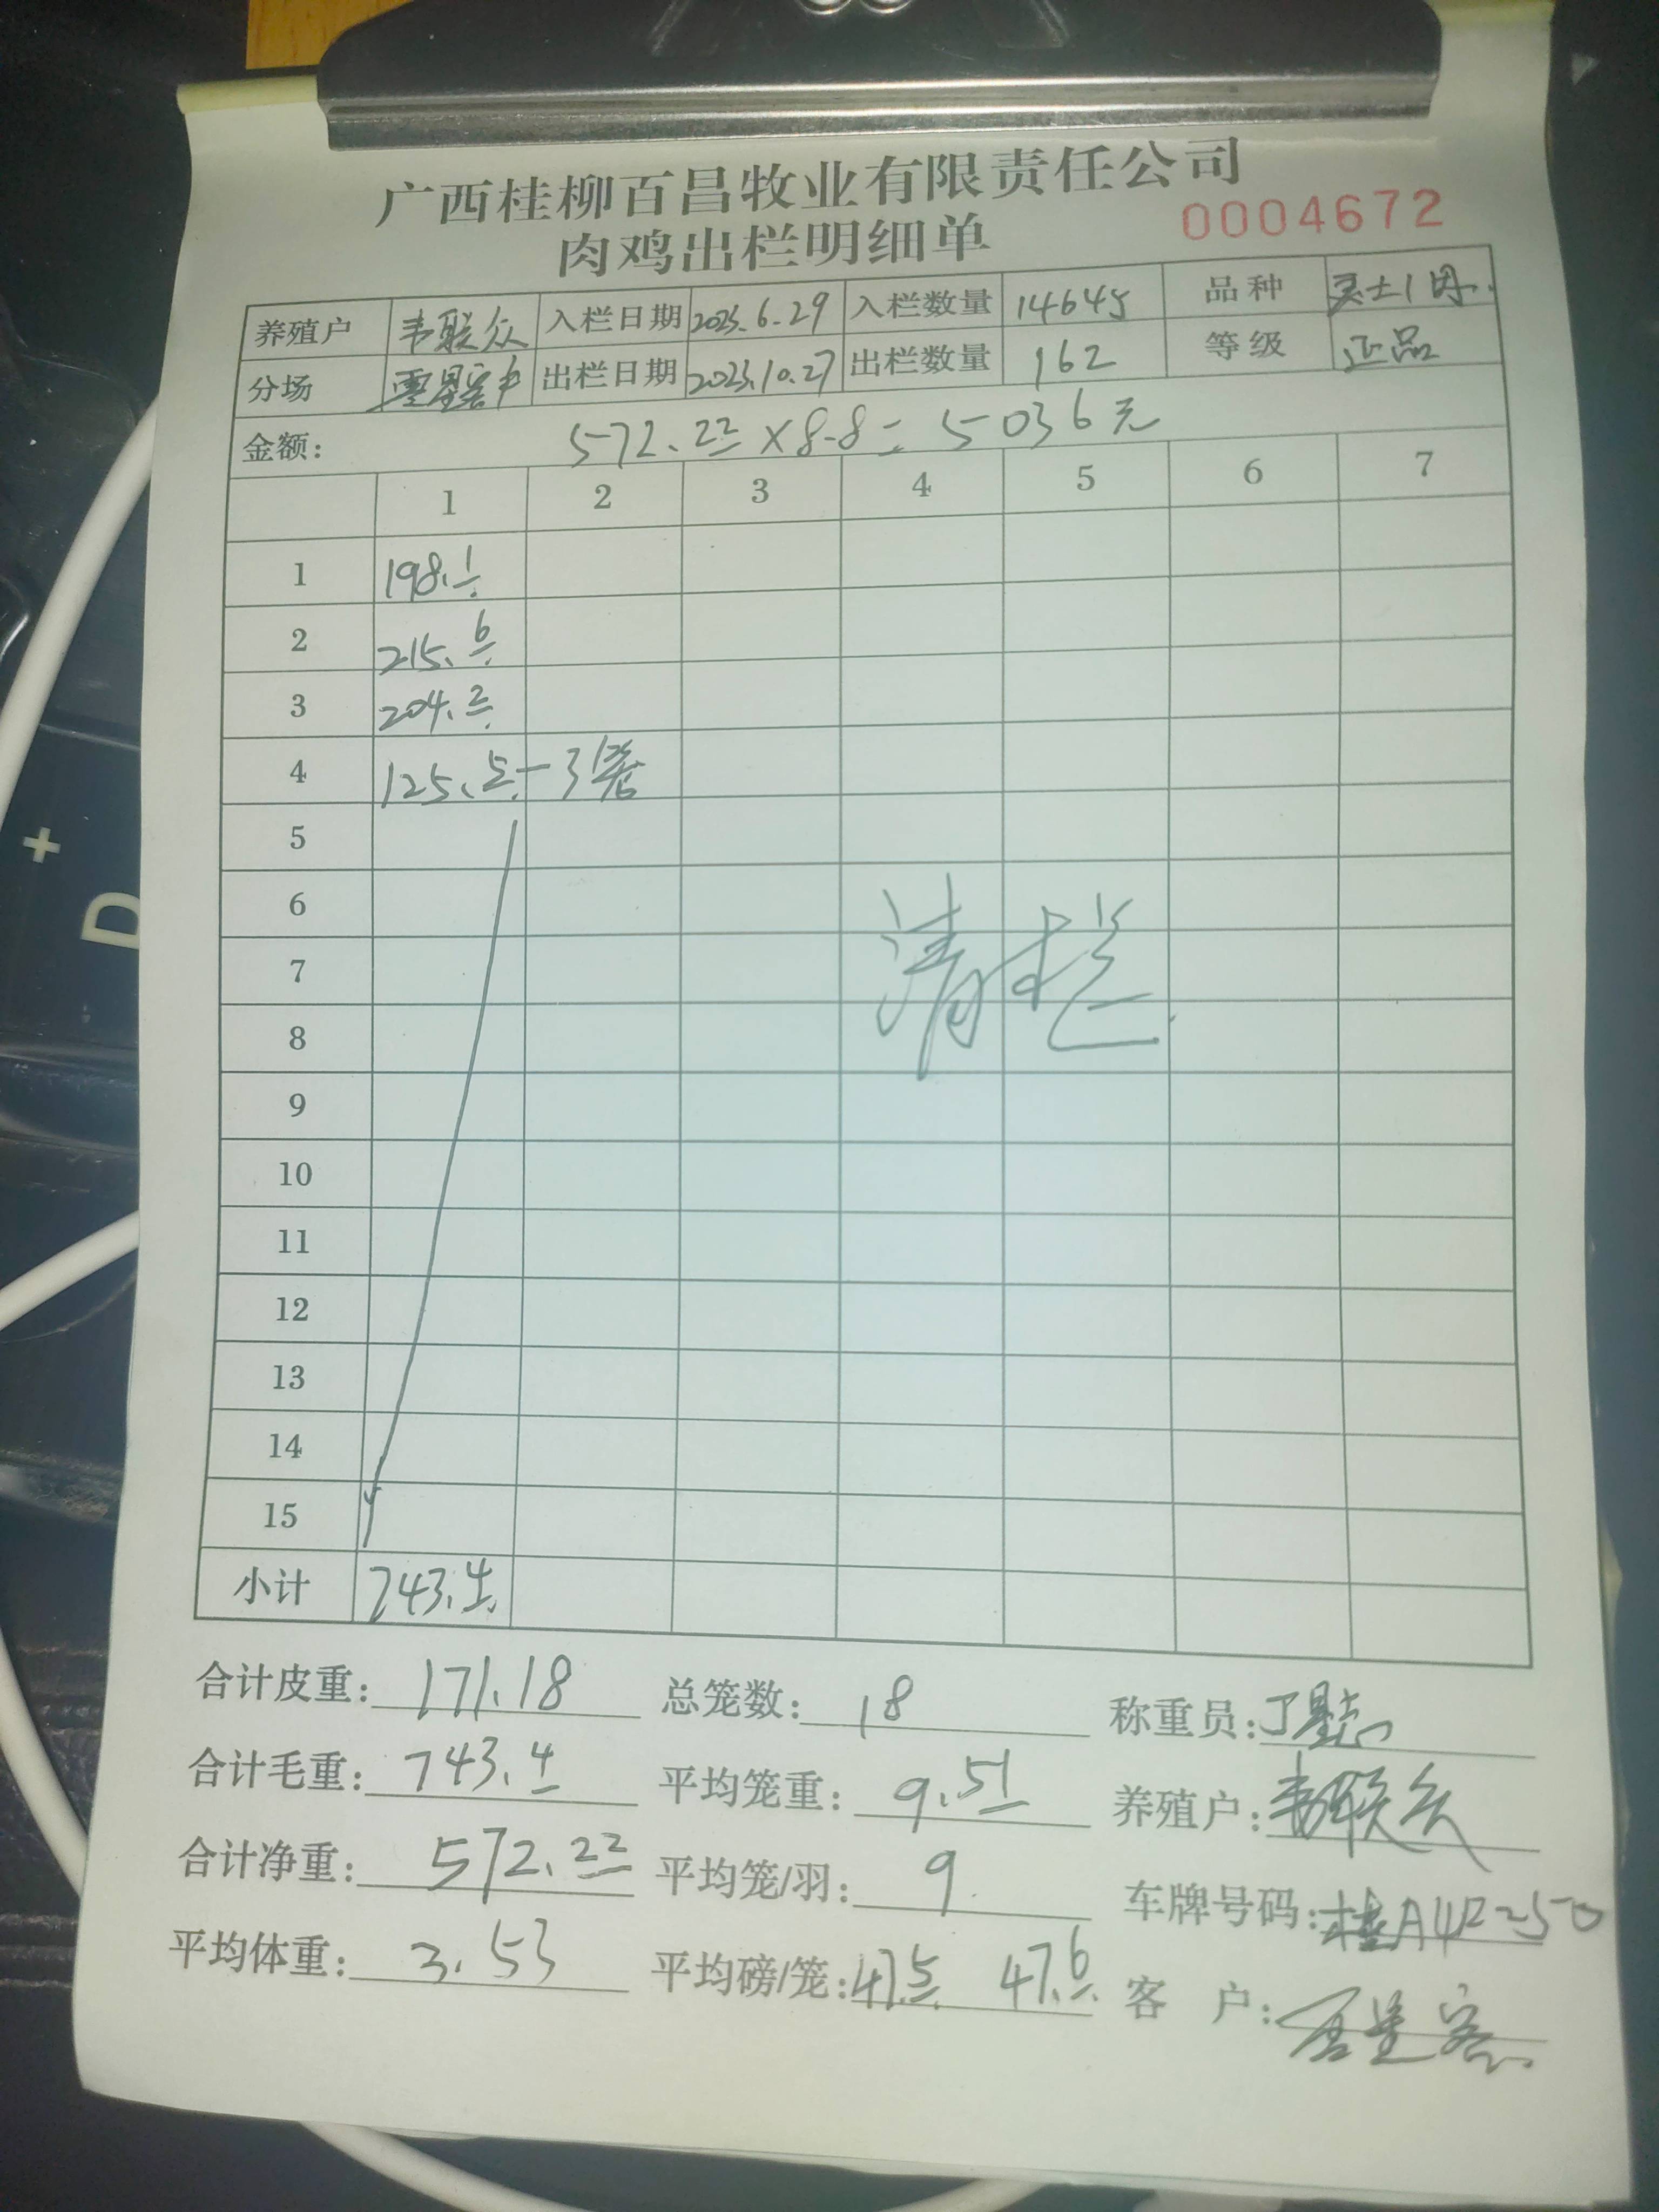 广西桂柳百昌牧业有限责任公司
肉鸡出栏明细单 0004672
养殖户 韦联众 入栏日期 2023.6.29 入栏数量 14645 品种
分场 出栏日期 2023.10.27 出栏数量 162 等级 正品
金额: 572.22×8.8=5036元
1 2 3 4 5 6 7
1 198.1
2 215.6
3 204.2
4 125.5-3笼
5
6
清栏
7
8
9
10
11
12
13
14
15
小计 743.4
合计皮重: 171.18 总笼数: 18 称重员:
合计毛重: 743.4 平均笼重: 9.51 养殖户: 韦联众
合计净重: 572.22 平均笼/羽: 9 车牌号码:
平均体重: 3.53 平均磅/笼: 47.5 47.6 客 户:
D
+